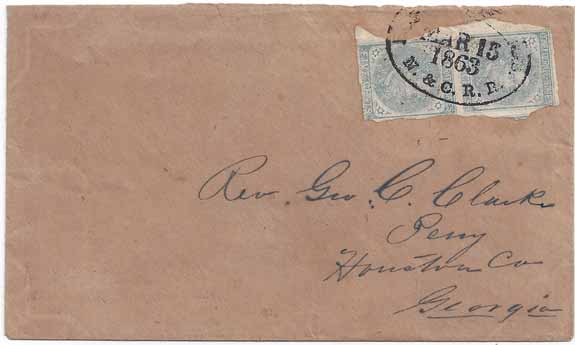 MAR 13
1863
M. & C. R. R.
Rev. Geo. C. Clarke
Perry
Houston Co
Georgia